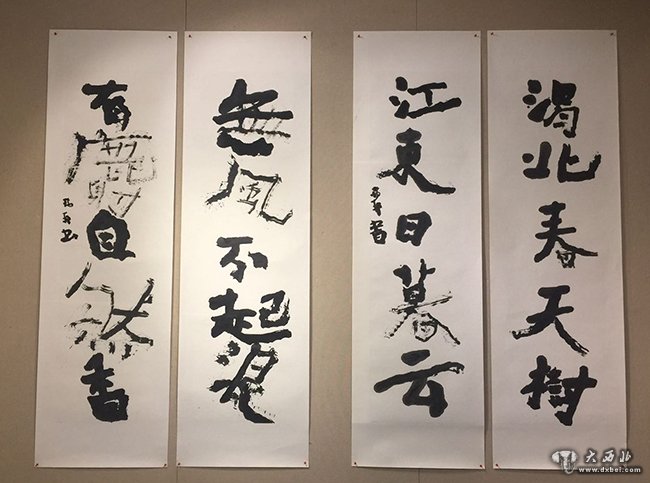 渭北春天樹
江東日暮云
無風不起浪
有麝自然香
大西北
www.dxbei.com